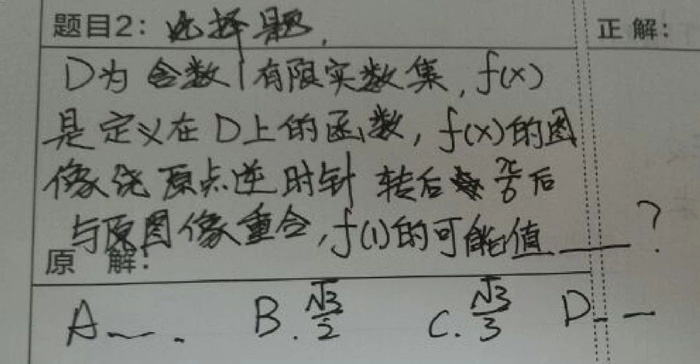 题目2：选择题.
正 解：
D为 含数1有限实数集, f(x)
是定义在D上的函数, f(x)的图
像绕原点逆时针 转后 π/6 后
与原图像重合, f(1)的可能值 ___ ?
原 解：
A — . B. √3/2 C. √3/3 D. —